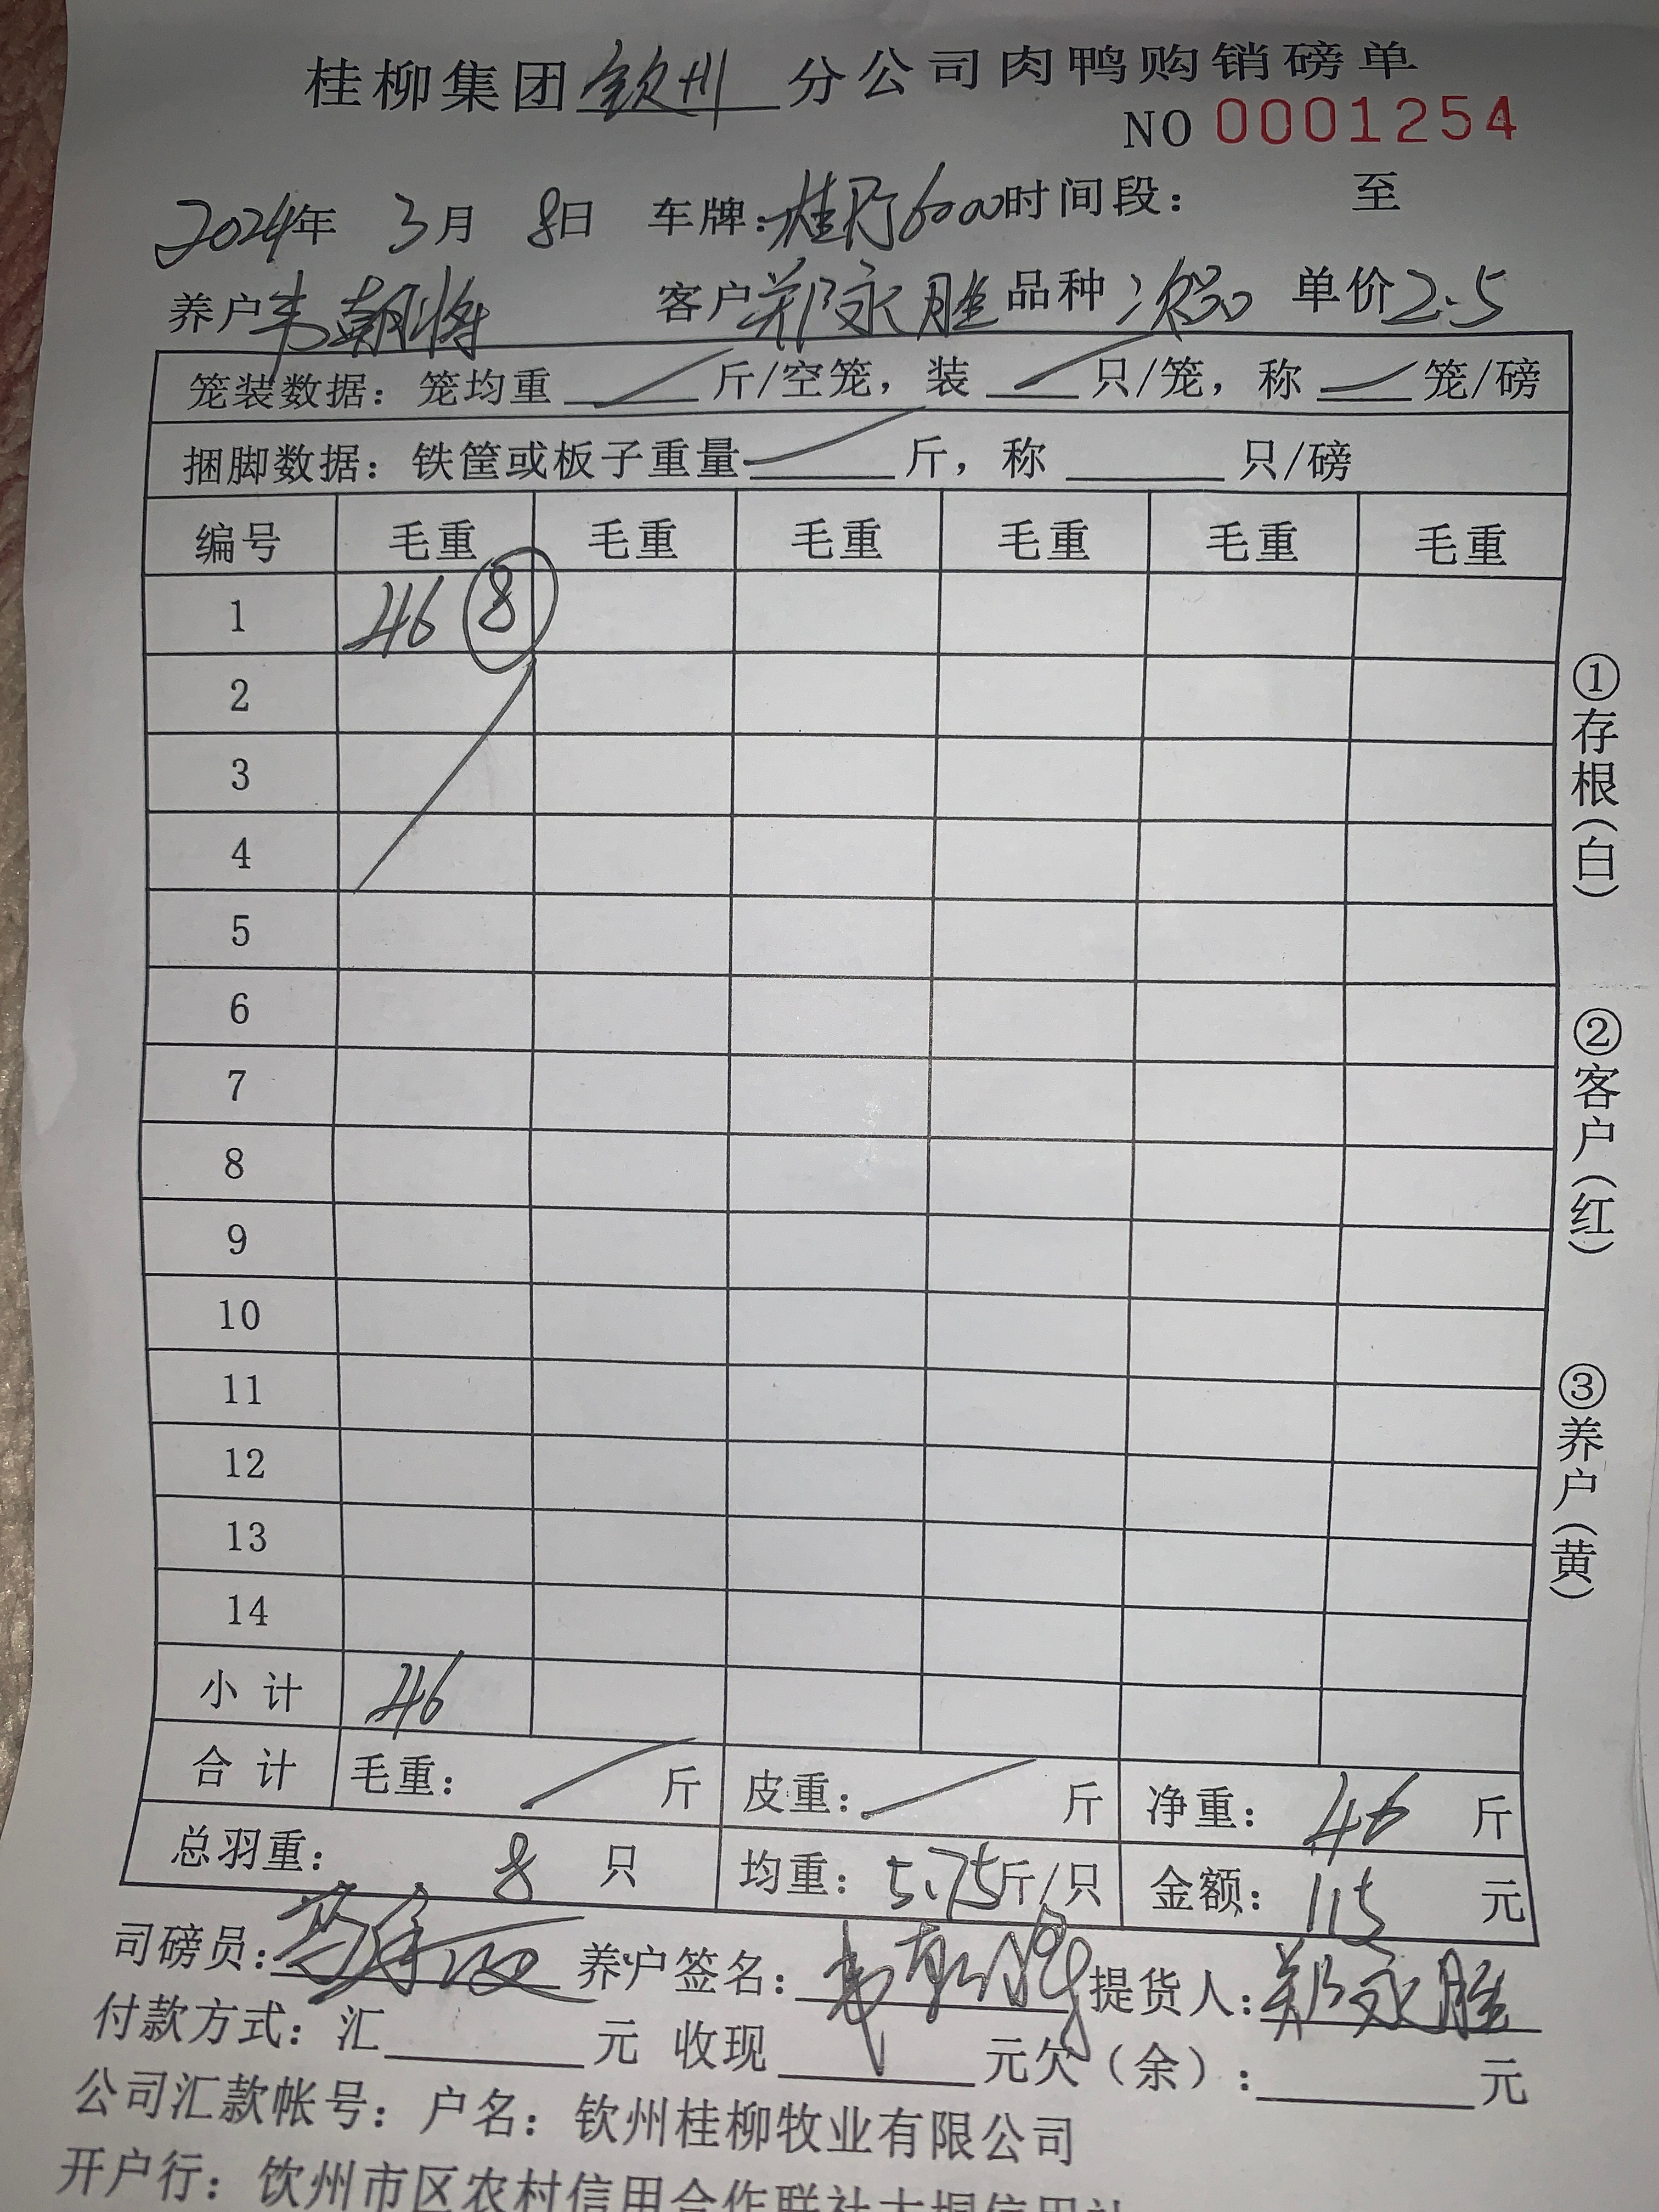 桂柳集团钦州分公司肉鸭购销磅单
NO 0001254
2024年 3月 8日 车牌：桂 6000 时间段： 至
养户韦朝将 客户郑永胜 品种次品 单价2.5
笼装数据：笼均重 斤/空笼，装 只/笼，称 笼/磅
捆脚数据：铁筐或板子重量 斤，称 只/磅
编号 毛重 毛重 毛重 毛重 毛重 毛重
1 46 8
2
3
4
5
6
7
8
9
10
11
12
13
14
小计 46
合计 毛重： 斤 皮重： 斤 净重：46 斤
总羽重：8 只 均重：5.75斤/只 金额：115 元
司磅员： 养户签名：韦 提货人：郑永胜
付款方式：汇 元 收现 元欠（余）： 元
公司汇款帐号：户名：钦州桂柳牧业有限公司
开户行：钦州市区农村信用合作联社大垌信用社
①存根（白）
②客户（红）
③养户（黄）